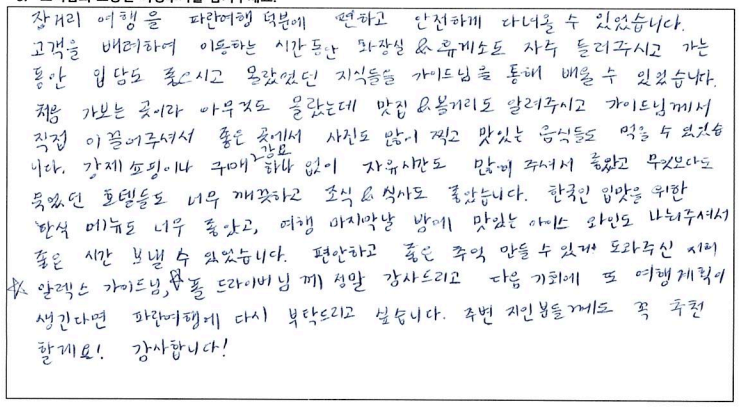 장거리 여행을 파란여행 덕분에 편하고 안전하게 다녀올 수 있었습니다.
고객을 배려하여 이동하는 시간동안 화장실 & 휴게소도 자주 들러주시고 가는
동안 입담도 좋으시고 몰랐었던 지식들을 가이드님을 통해 배울 수 있었습니다.
처음 가보는 곳이라 아무것도 몰랐는데 맛집 & 볼거리도 알려주시고 가이드님께서
직접 이끌어주셔서 좋은 곳에서 사진도 많이 찍고 맛있는 음식들도 먹을 수 있었습
니다. 강제쇼핑이나 구매 강요 하나 없이 자유시간도 많이 주셔서 좋았고 무엇보다도
묵었던 호텔들도 너무 깨끗하고 조식 & 식사도 좋았습니다. 한국인 입맛을 위한
한식 메뉴도 너무 좋았고, 여행 마지막날 밤에 맛있는 아이스 와인도 나눠주셔서
좋은 시간 보낼 수 있었습니다. 편안하고 좋은 추억 만들 수 있게 도와주신
☆ 알렉스 가이드님, ☆폴 드라이버님께 정말 감사드리고 다음 기회에 또 여행계획이
생긴다면 파란여행에 다시 부탁드리고 싶습니다. 주변 지인분들께도 꼭 추천
할게요! 감사합니다!